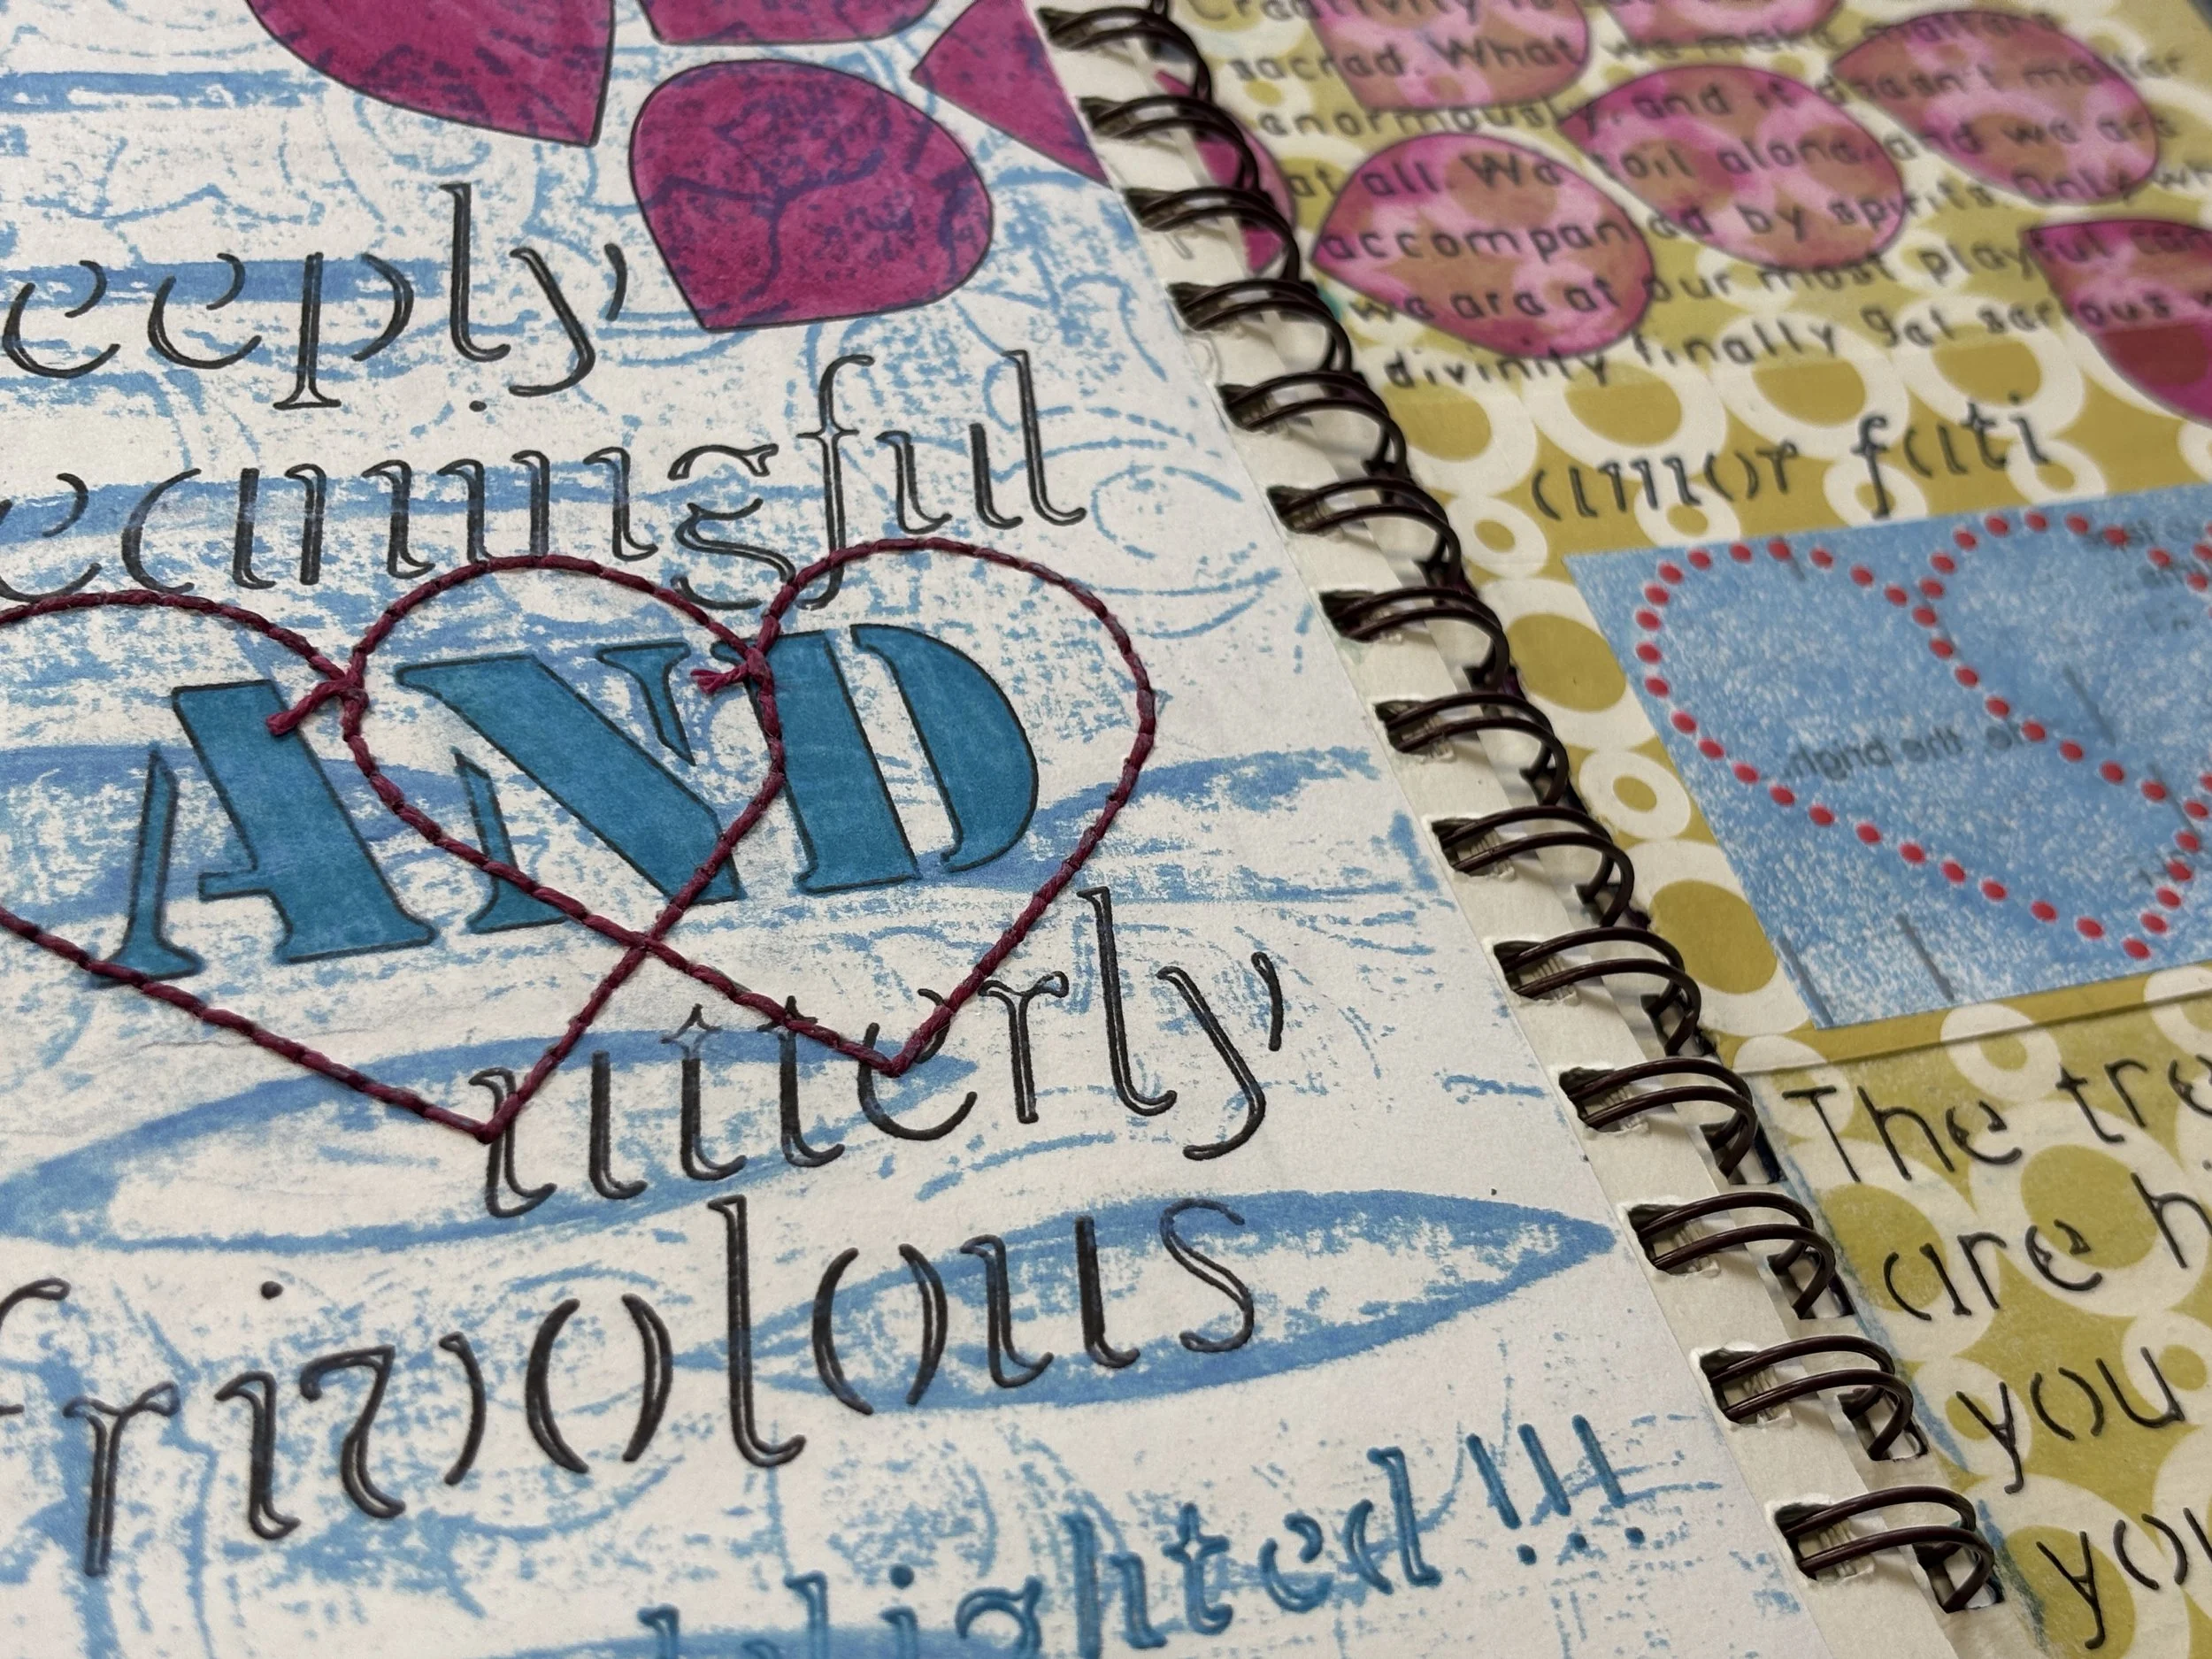 eeply
eaningful
AND
utterly
frivolous
lighted!!!
Creativity is
sacred. What we make matters
enormously, and it doesn't matter
at all. We toil alone, and we are
accompanied by spirits. Only wh
we are at our most playful can
divinity finally get serious
amor fati
The tre
are h
you
you